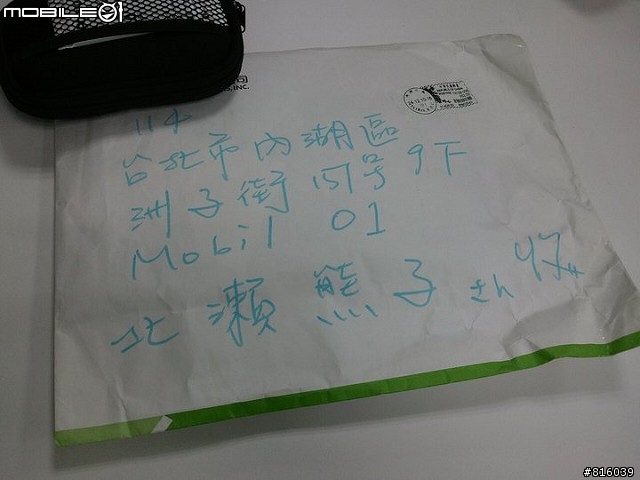 MOBILE01
司
, INC.
114
台北市內湖區
洲子街151号9F
Mobil 01
北瀨熊子さん收
#816039